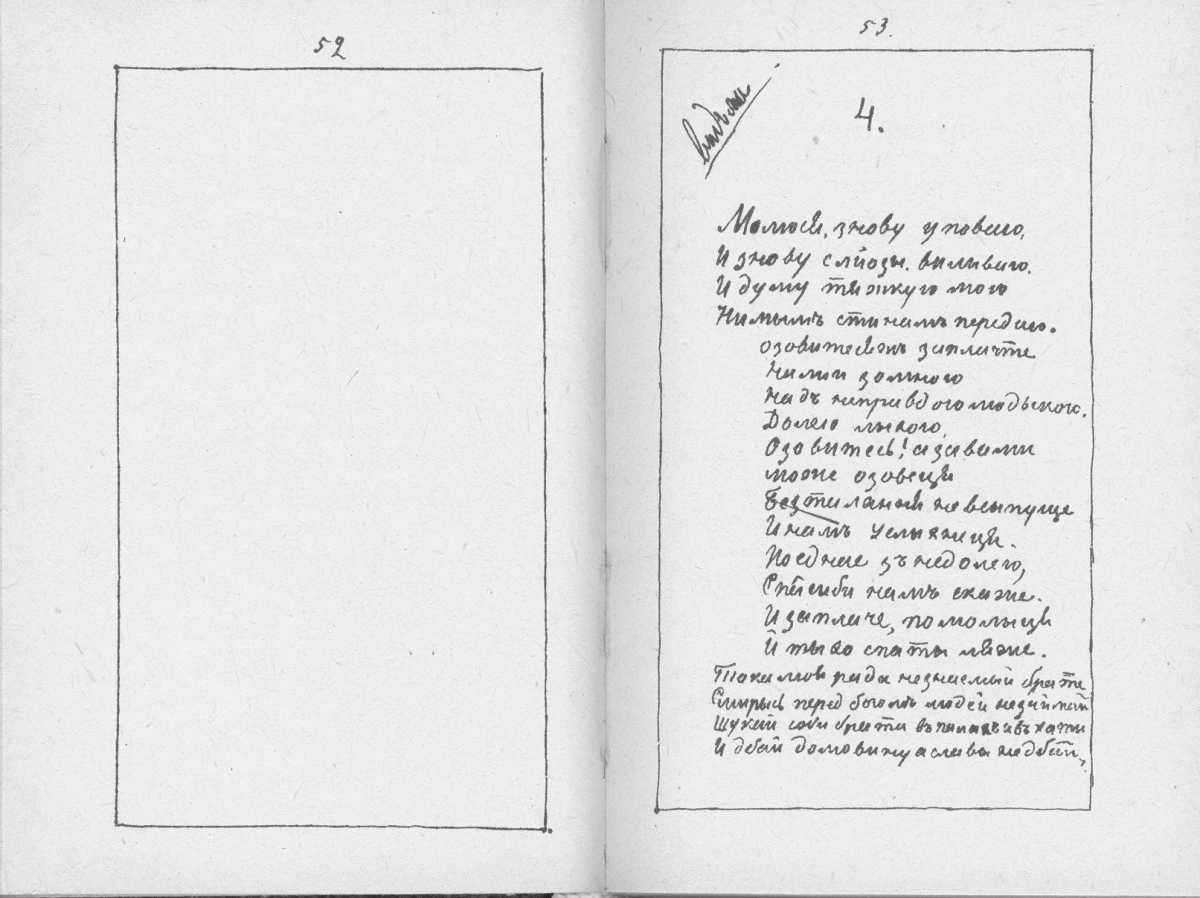 52
53.
4.
Молюся, знову уповаю,
И знову слйозы виливаю.
И думу тяжкую мою
Нимымъ стинамъ передаю.
Озовитеся жъ заплачте
Нимии зомною
Надъ неправдою людською.
Долею лыхою,
Озовитесь! а завами
може озовеця
Безтиланый невсыпуще
И намъ усмихнеця.
Поеднае зънедолею,
Спасиби намъ скаже.
И заплаче, помолыця
Й тыхо спаты ляже.
Така моя рада незнаемый брате
Смирысь перед богомъ людей незаймай
Шукай соби брата въ и въ хати
И дбай домовину а славы недбай,